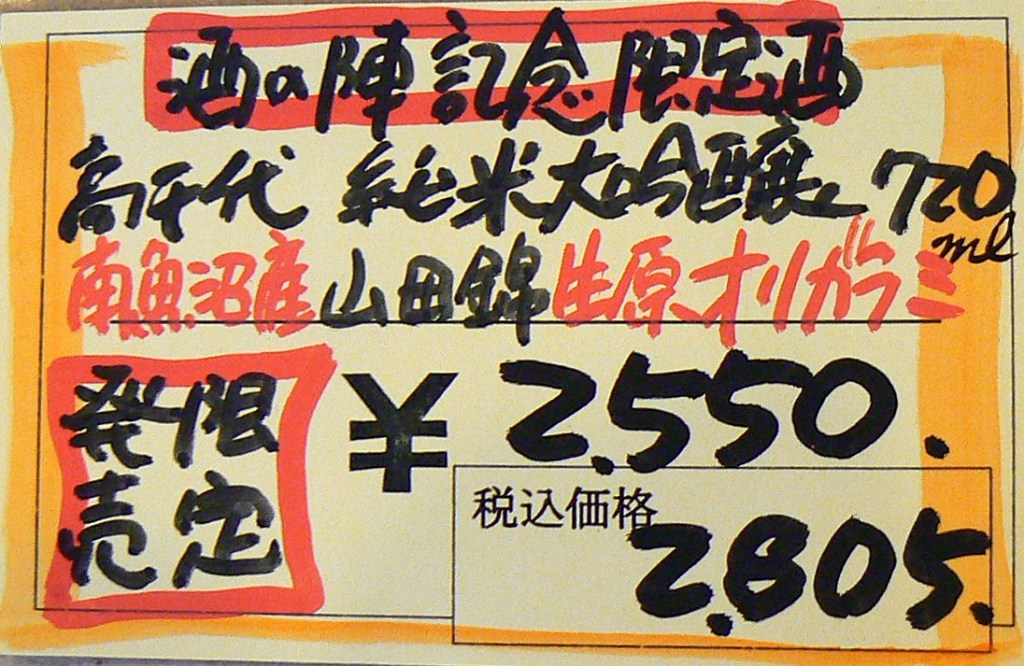 酒の陣記念限定酒
高千代 純米大吟醸 720ml
南魚沼産山田錦生原オリガラミ
限定発売
¥2,550.
税込価格
2,805.